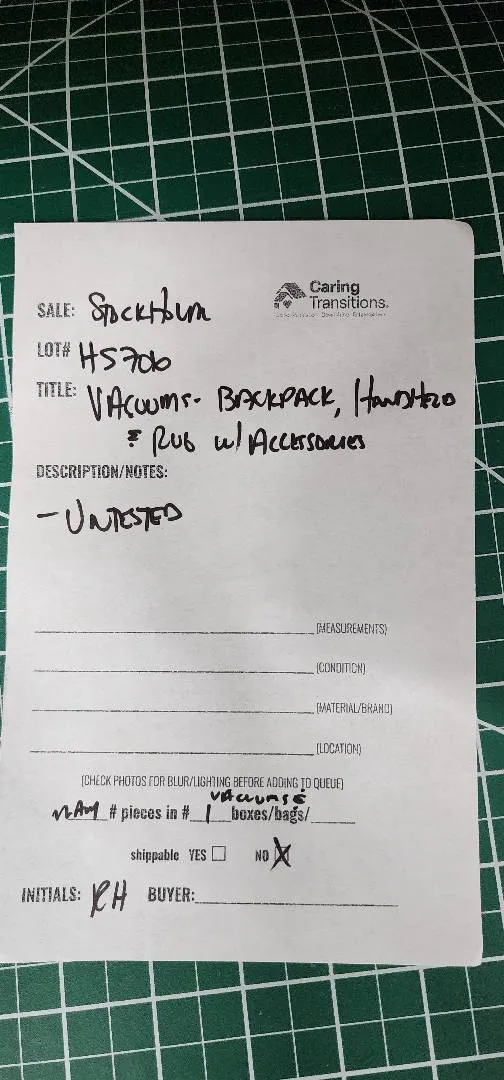 Caring
Transitions.
SALE: Stockholm
LOT# HS706
TITLE: VACUUMS- BACKPACK, HANDHELD
& RUG w/ ACCESSORIES
DESCRIPTION/NOTES:
- UNTESTED
(MEASUREMENTS)
(CONDITION)
(MATERIAL/BRAND)
(LOCATION)
(CHECK PHOTOS FOR BLUR/LIGHTING BEFORE ADDING TO QUEUE)
VACUUMS &
MANY # pieces in # 1 boxes/bags/
shippable YES NO X
INITIALS: RH BUYER: